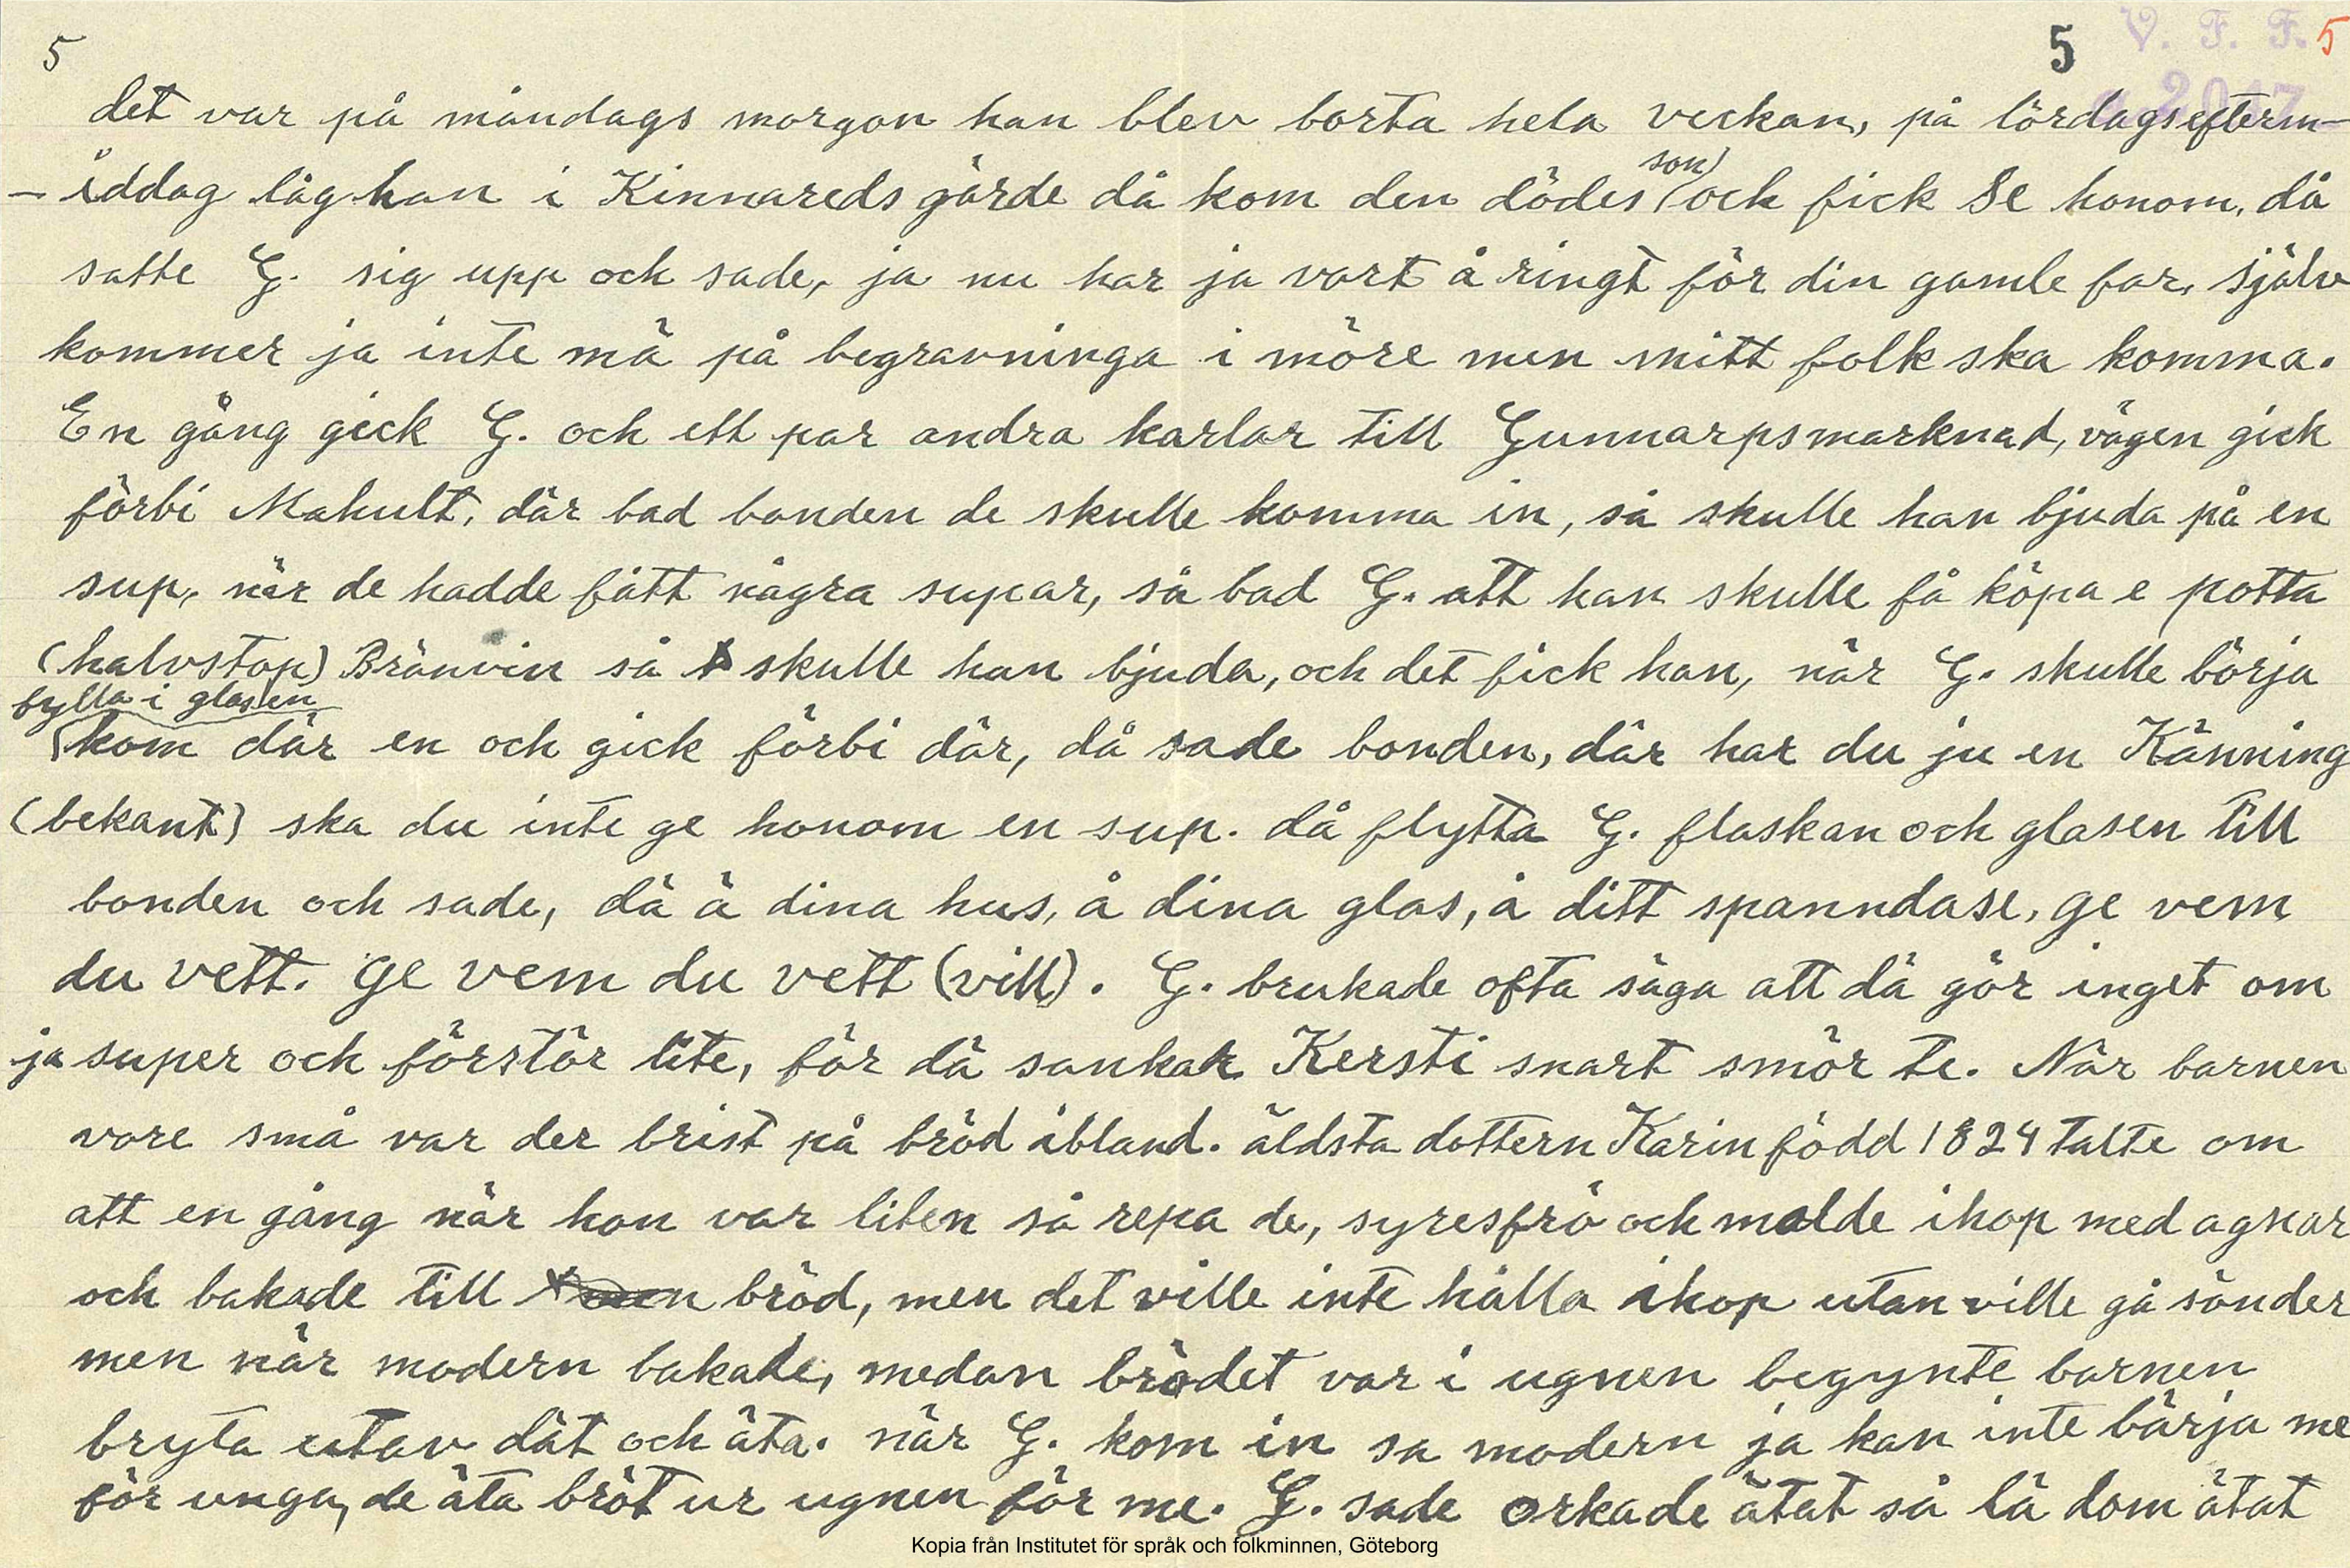 5 5 V. F. F. 5
2017
det var på måndags morgon han blev borta hela veckan, på lördagsefterm-
- iddag låg han i Kinnareds gärde då kom den dödes son och fick se honom, då
satte G. sig upp och sade, ja nu har ja vart å ringt för din gamle far, själv
kommer ja inte mä på begravninga i möre men mitt folk ska komma.
En gång gick G. och ett par andra karlar till Gunnarpsmarknad, vägen gick
förbi Mahult, där bad bonden de skulle komma in, så skulle han bjuda på en
sup, när de hadde fått några supar, så bad G. att han skulle få köpa e potta
(halvstop) Bränvin så skulle han bjuda, och det fick han, när G. skulle börja
fylla i glasen
kom där en och gick förbi där, då sade bonden, där har du ju en Känning
(bekant) ska du inte ge honom en sup. då flytta G. flaskan och glasen till
bonden och sade, dä ä dina hus, å dina glas, å ditt spanndase, ge vem
du vett. ge vem du vett (vill). G. brukade ofta säga att dä gör inget om
ja super och förstör lite, för dä sankar Kersti snart smör te. När barnen
vore små var der brist på bröd ibland. äldsta dottern Karin född 1824 talte om
att en gång när hon var liten så repa de, syresfrö och malde ihop med agnar
och bakade till bröd, men det ville inte hålla ihop utan ville gå sönder
men när modern bakade, medan brödet var i ugnen begynte barnen
bryta utav dät och äta. när G. kom in sa modern ja kan inte bärja me
för unga, de äta bröt ur ugnen för me. G. sade orkade ätat så lä dom ätat
Kopia från Institutet för språk och folkminnen, Göteborg